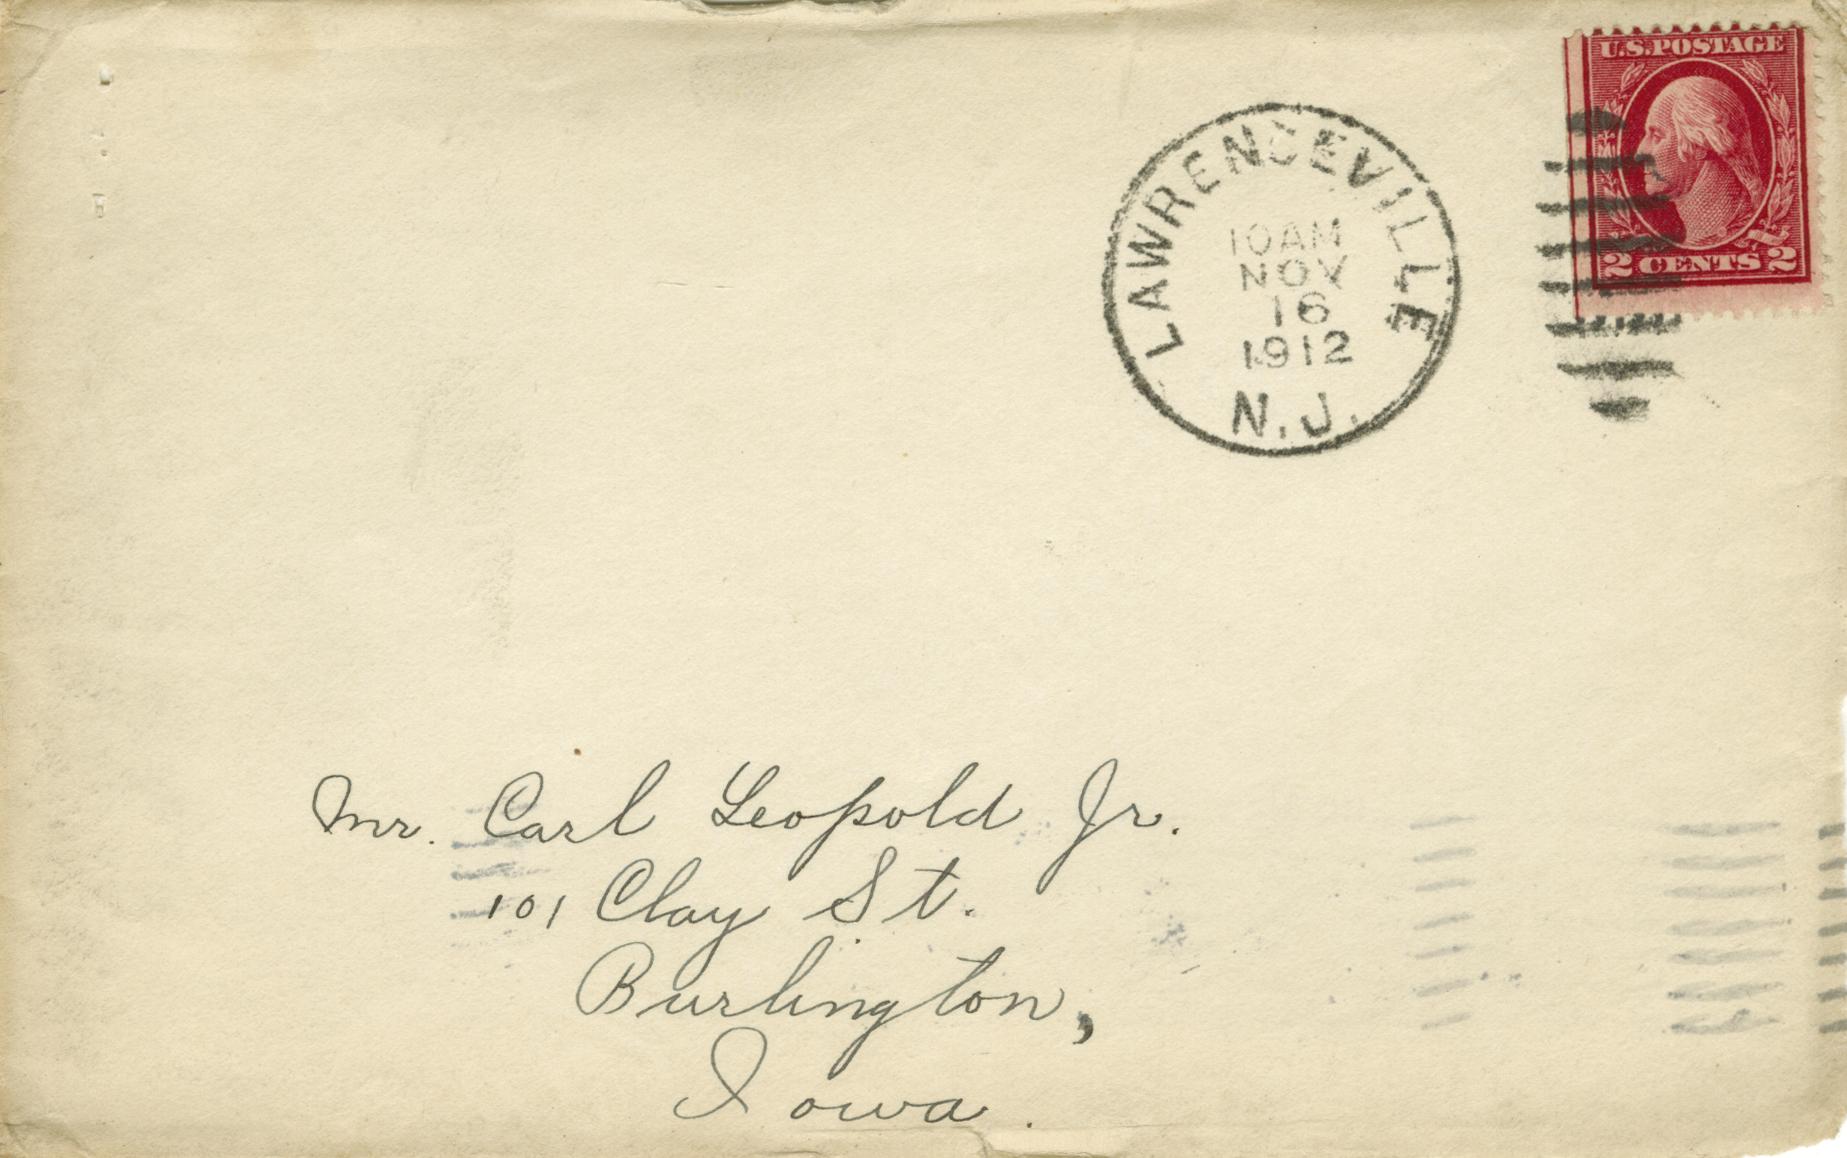 U.S. POSTAGE
2 CENTS 2
LAWRENCEVILLE
10 AM
NOV
16
1912
N.J.
Mr. Carl Leopold Jr.
101 Clay St.
Burlington,
Iowa.